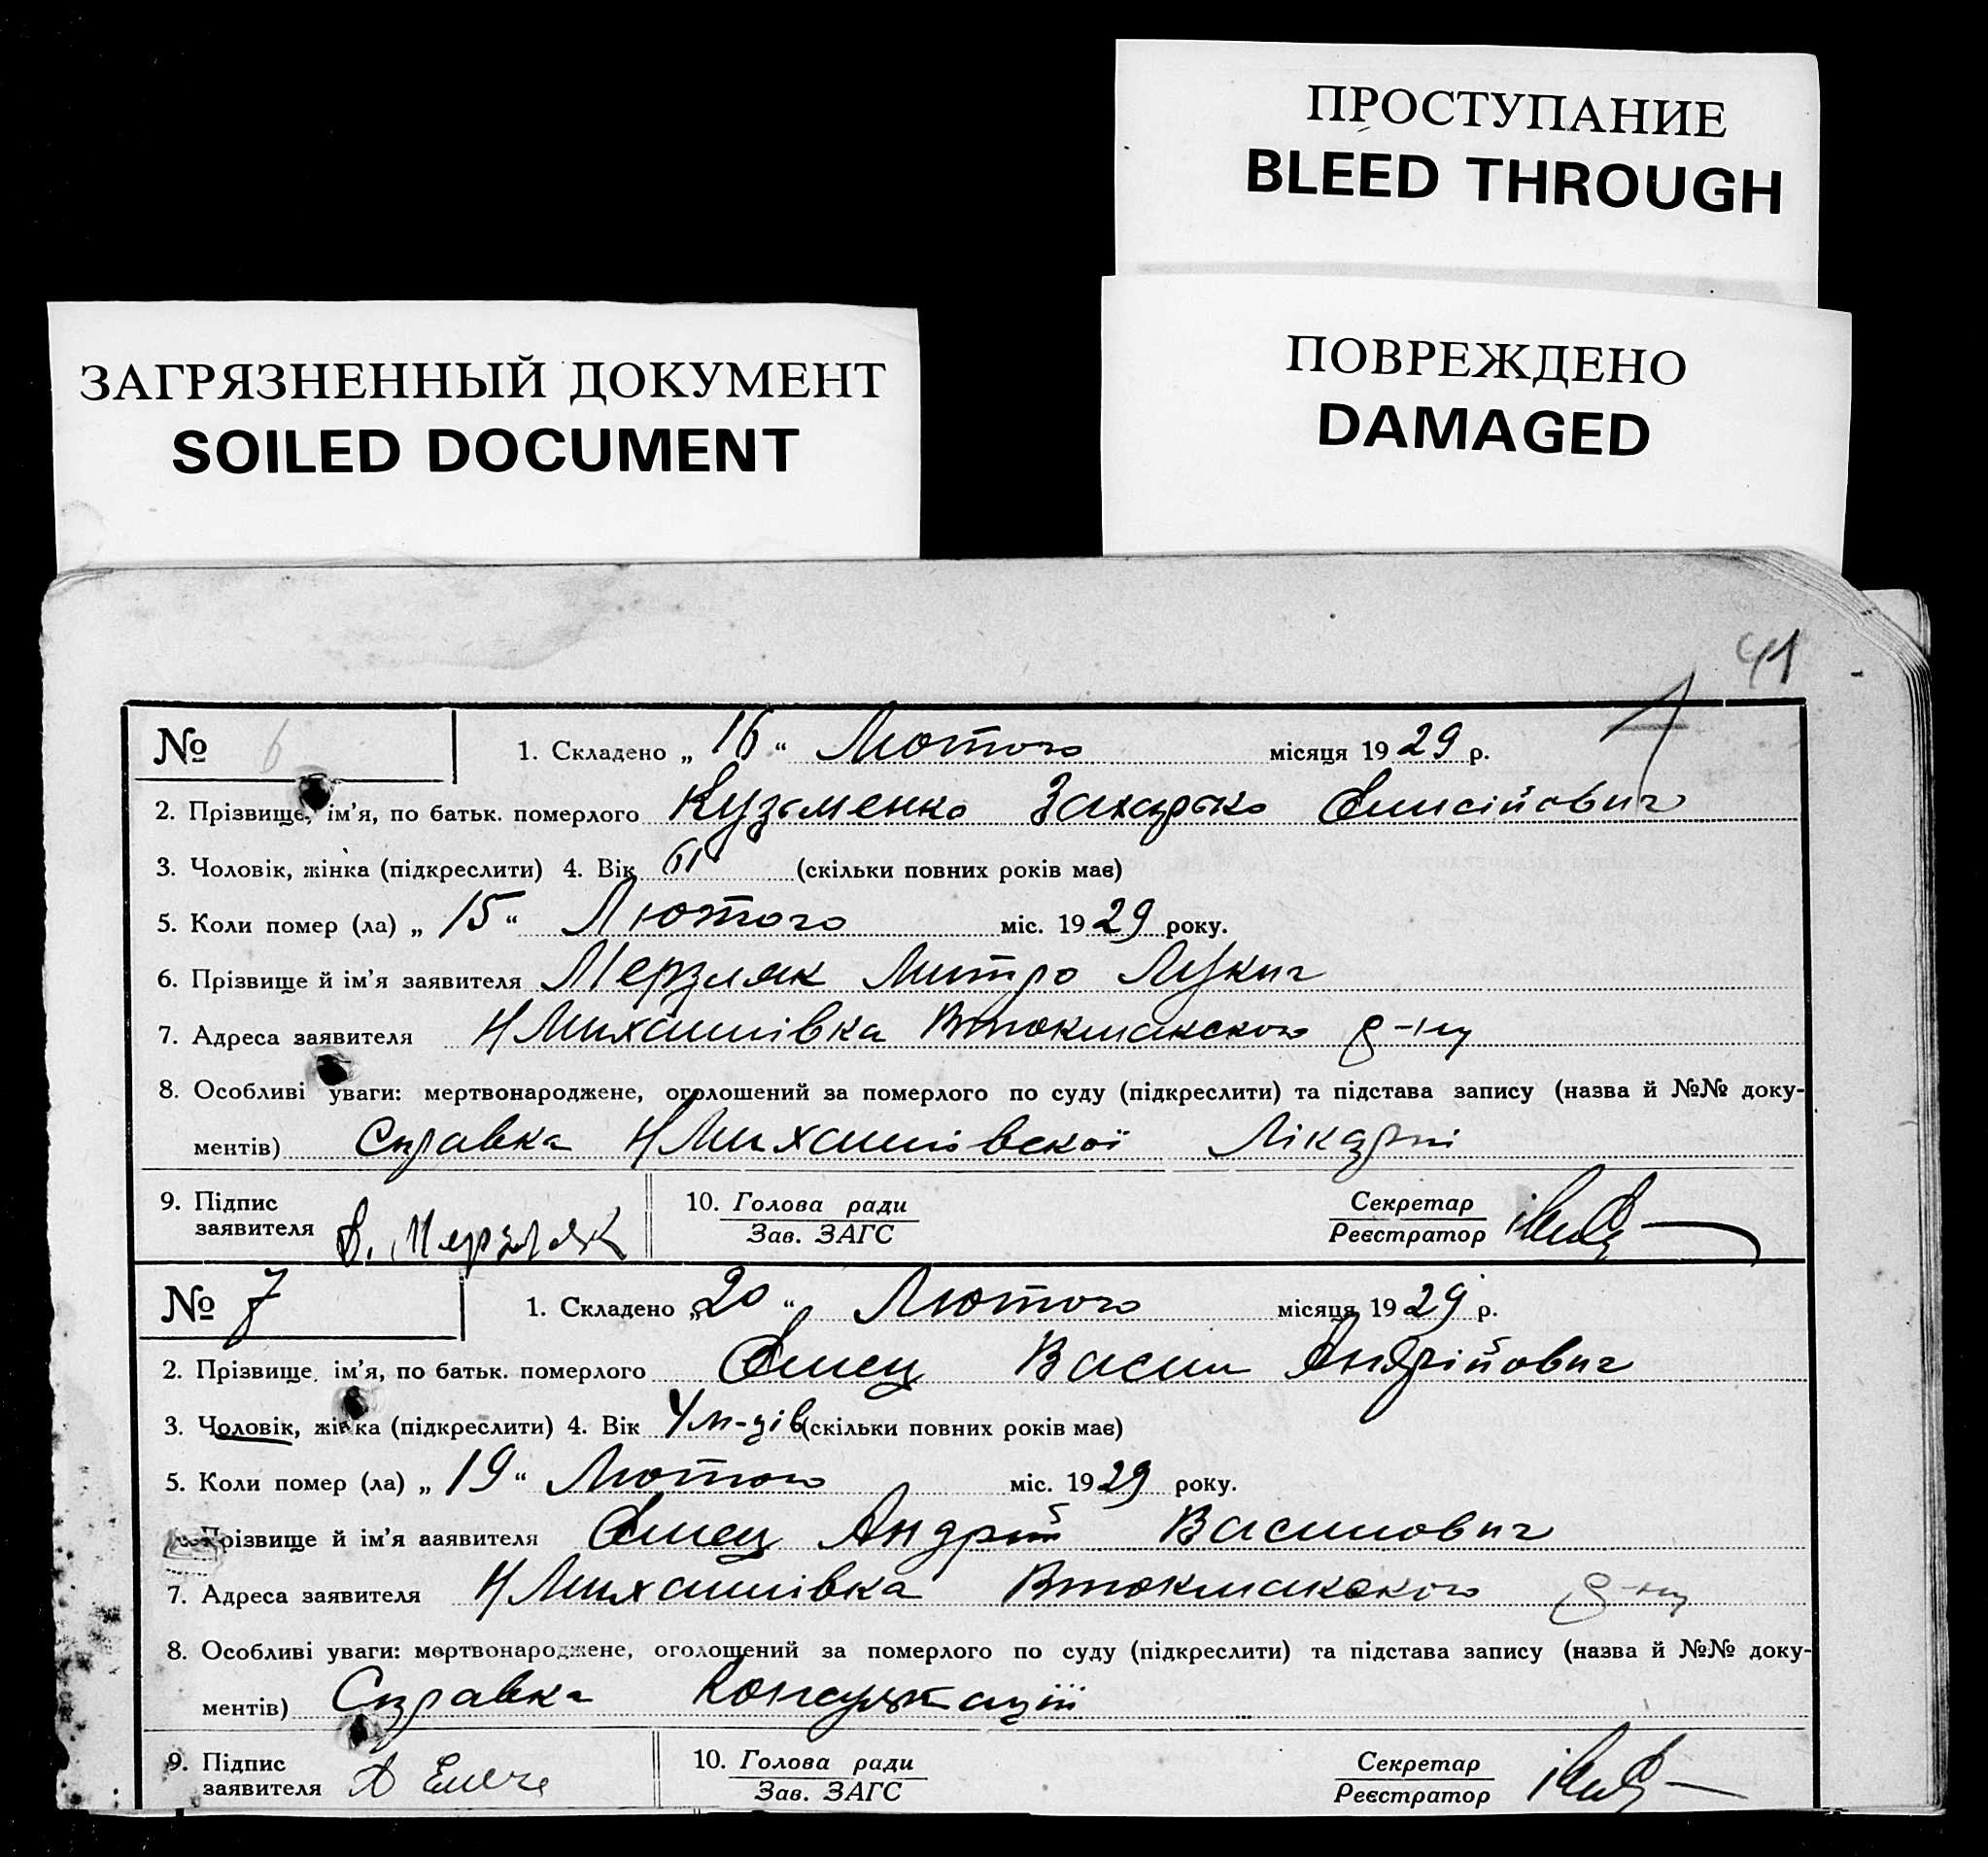 ПРОСТУПАНИЕ
BLEED THROUGH
ЗАГРЯЗНЕННЫЙ ДОКУМЕНТ
SOILED DOCUMENT
ПОВРЕЖДЕНО
DAMAGED
41
№ 6 1. Складено „ 16 “ Лютого місяця 1929 р.
2. Прізвище, ім'я, по батьк. померлого Кузьменко Захарько
3. Чоловік, жінка (підкреслити) 4. Вік 61 (скільки повних років має)
5. Коли помер (ла) „ 15 “ Лютого міс. 1929 року.
6. Прізвище й ім'я заявителя Мерзляк Митро Лукич
7. Адреса заявителя Н Михайлівка Втокмакского р-ну
8. Особливі уваги: мертвонароджене, оголошений за померлого по суду (підкреслити) та підстава запису (назва й №№ доку-
ментів) Справка Н Михайлівскої Лікарні
9. Підпис 10. Голова ради Секретар
заявителя Д. Мерзляк Зав. ЗАГС Реєстратор
№ 7 1. Складено „ 20 “ Лютого місяця 1929 р.
2. Прізвище, ім'я, по батьк. померлого Ємец Васил Андрійович
3. Чоловік, жінка (підкреслити) 4. Вік 4 м-ців (скільки повних років має)
5. Коли помер (ла) „ 19 “ Лютого міс. 1929 року.
Прізвище й ім'я заявителя Ємец Андрій Василович
7. Адреса заявителя Н Михайлівка Втокмакского р-ну
8. Особливі уваги: мертвонароджене, оголошений за померлого по суду (підкреслити) та підстава запису (назва й №№ доку-
ментів) Справка Консультації
9. Підпис 10. Голова ради Секретар
заявителя А Зав. ЗАГС Реєстратор